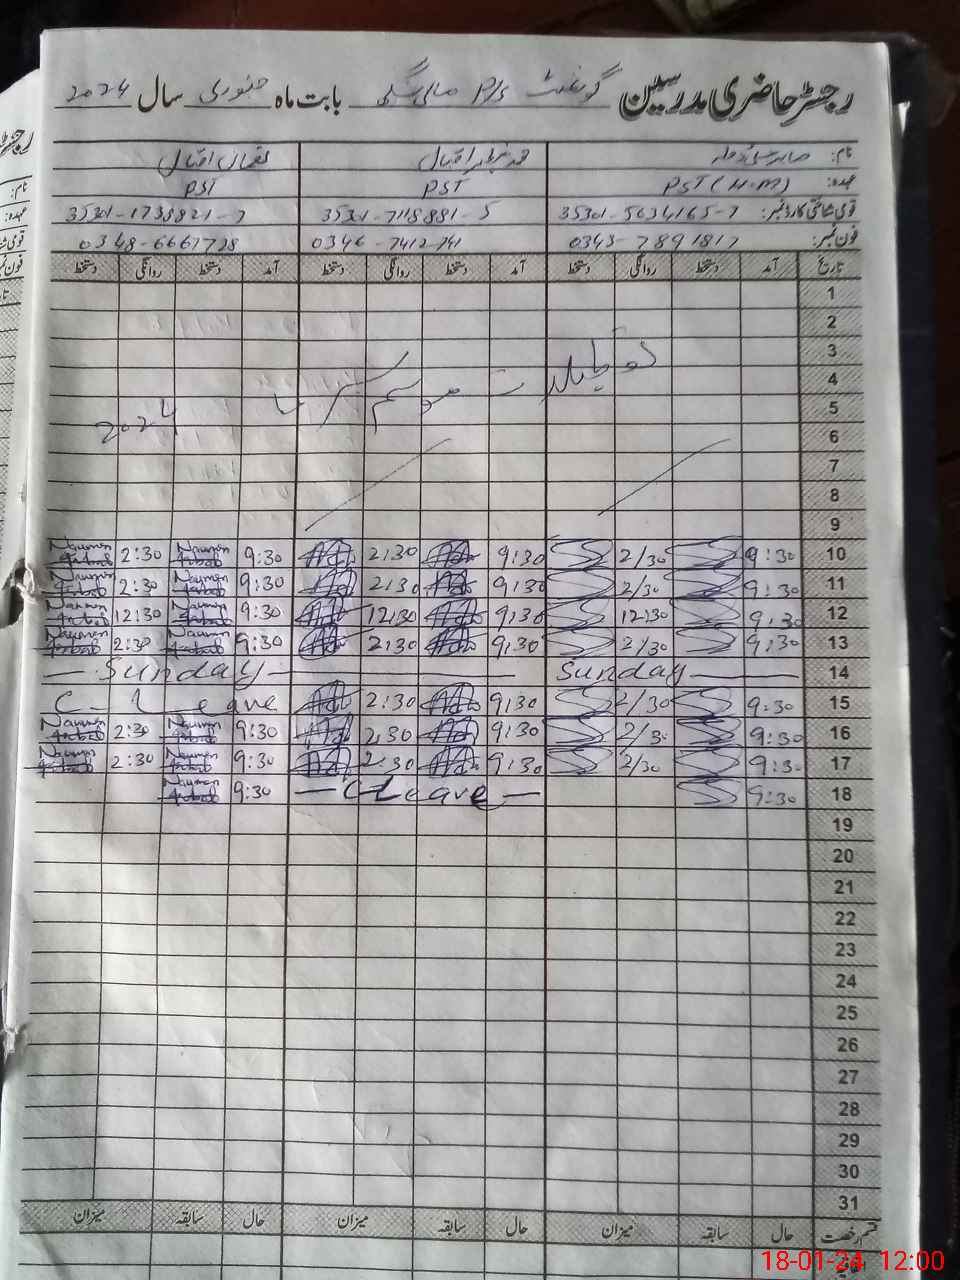 رجسٹر حاضری مدرسین گورنمنٹ P/s بابت ماہ جنوری سال 2024
نام: اقبال اقبال
عہدہ: PST (H.M) PST PST
قومی شناختی کارڈ نمبر: 35301-5634165-7 35301-7118881-5 35301-1738821-7
فون نمبر: 0343-7891817 0346-7412-741 0348-6661728
تاریخ آمد دستخط روانگی دستخط آمد دستخط روانگی دستخط آمد دستخط روانگی دستخط
1
2
3
4 موسم سرما
5 2024
6
7
8
9
10 9:30 2/30 9:30 2:30 9:30 Nauman 2:30 Nauman
11 9:30 2/30 9:30 2:30 9:30 Nauman 2:30 Nauman
12 9:30 12:30 9:30 12:30 9:30 Nauman 12:30 Nauman
13 9:30 2/30 9:30 2:30 9:30 Nauman 2:30 Nauman
14 Sunday Sunday
15 9:30 2/30 9:30 2:30 C. Leave
16 9:30 2/30 9:30 2:30 9:30 Nauman 2:30 Nauman
17 9:30 2/30 9:30 2:30 9:30 Nauman 2:30 Nauman
18 9:30 C Leave 9:30 Nauman
19
20
21
22
23
24
25
26
27
28
29
30
31
قسم رخصت حال سابقہ میزان حال سابقہ میزان حال سابقہ میزان
18-01-24 12:00